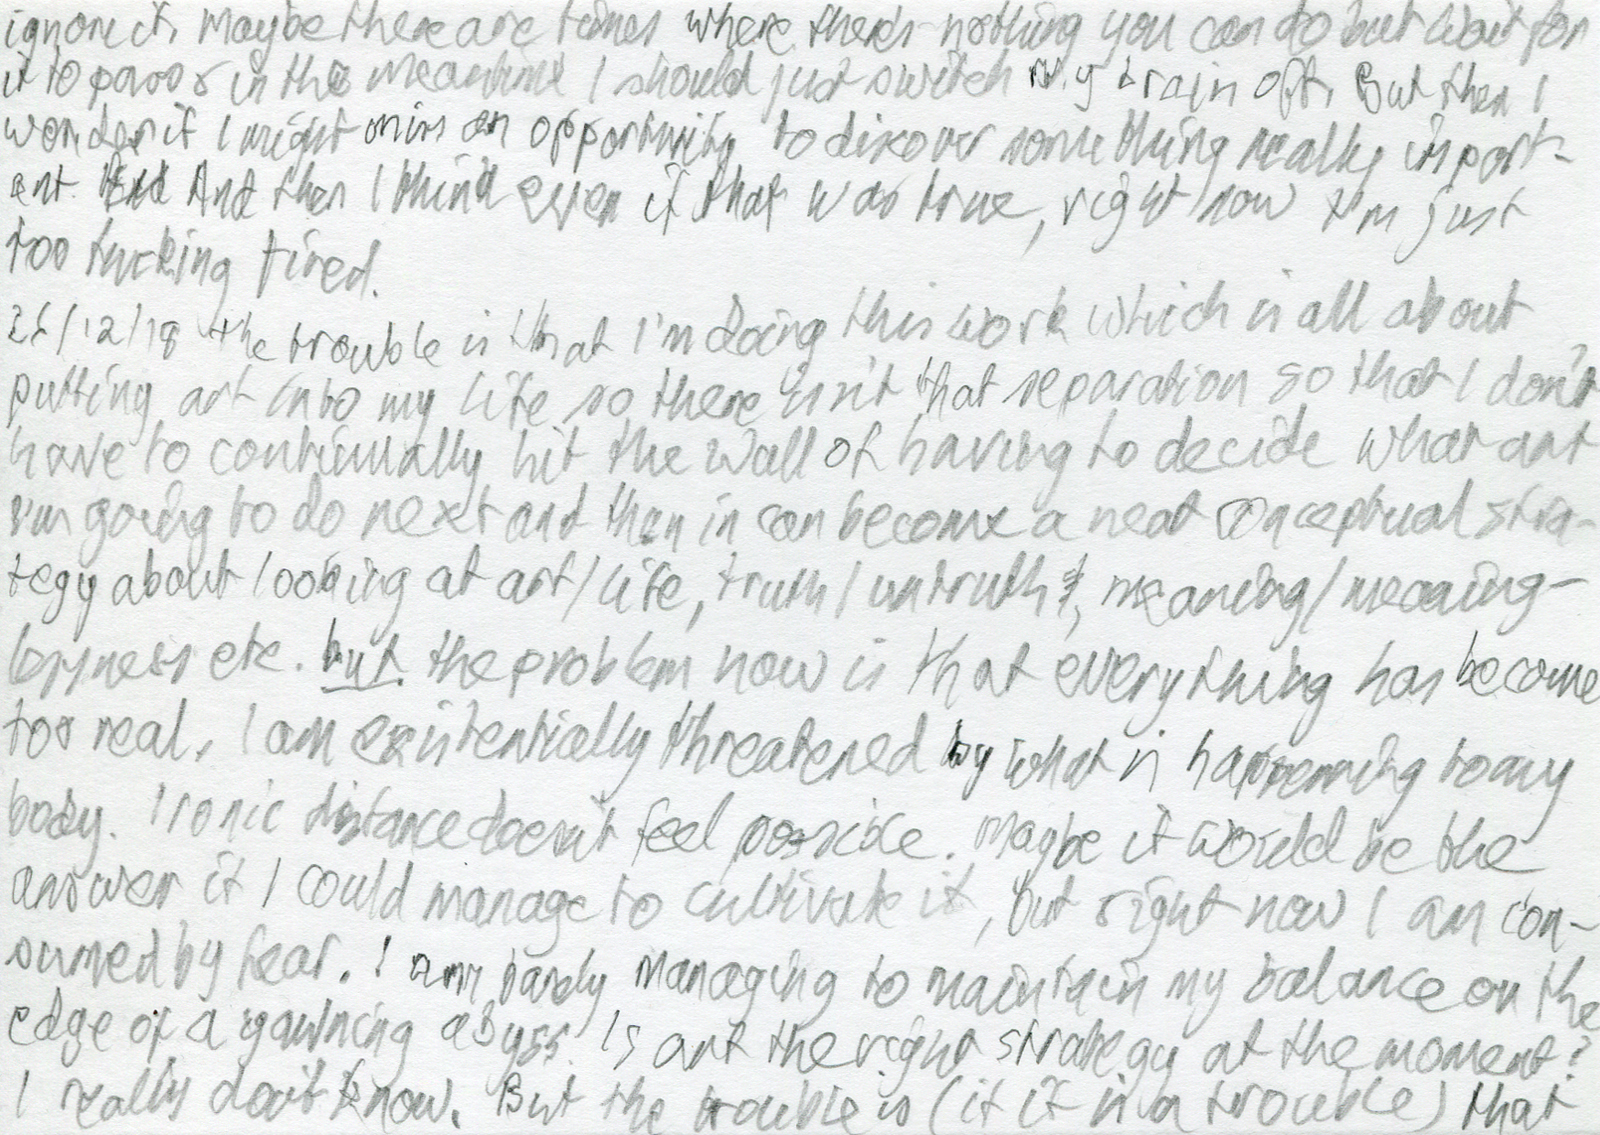 ignore it. Maybe there are times where there's nothing you can do but wait for
it to pass & in the meantime I should just switch my brain off. But then I
wonder if I might miss an opportunity to discover something really import-
ant. And then I think even if that was true, right now I'm just
too fucking tired.
/12/18 the trouble is that I'm doing this work which is all about
putting art into my life so there isn't that separation so that I don't
have to continually hit the wall of having to decide what art
I'm going to do next and then in can become a neat conceptual stra-
tegy about looking at art/life, truth/untruth, meaning/meaning-
lessness etc. but the problem now is that everything has become
too real. I am existentially threatened by what is happening to my
body. Ironic distance doesn't feel possible. Maybe it would be the
answer if I could manage to cultivate it, but right now I am con-
sumed by fear. I am barely managing to maintain my balance on the
edge of a yawning abyss. Is art the right strategy at the moment?
I really don't know. But the trouble is (if it is a trouble) that